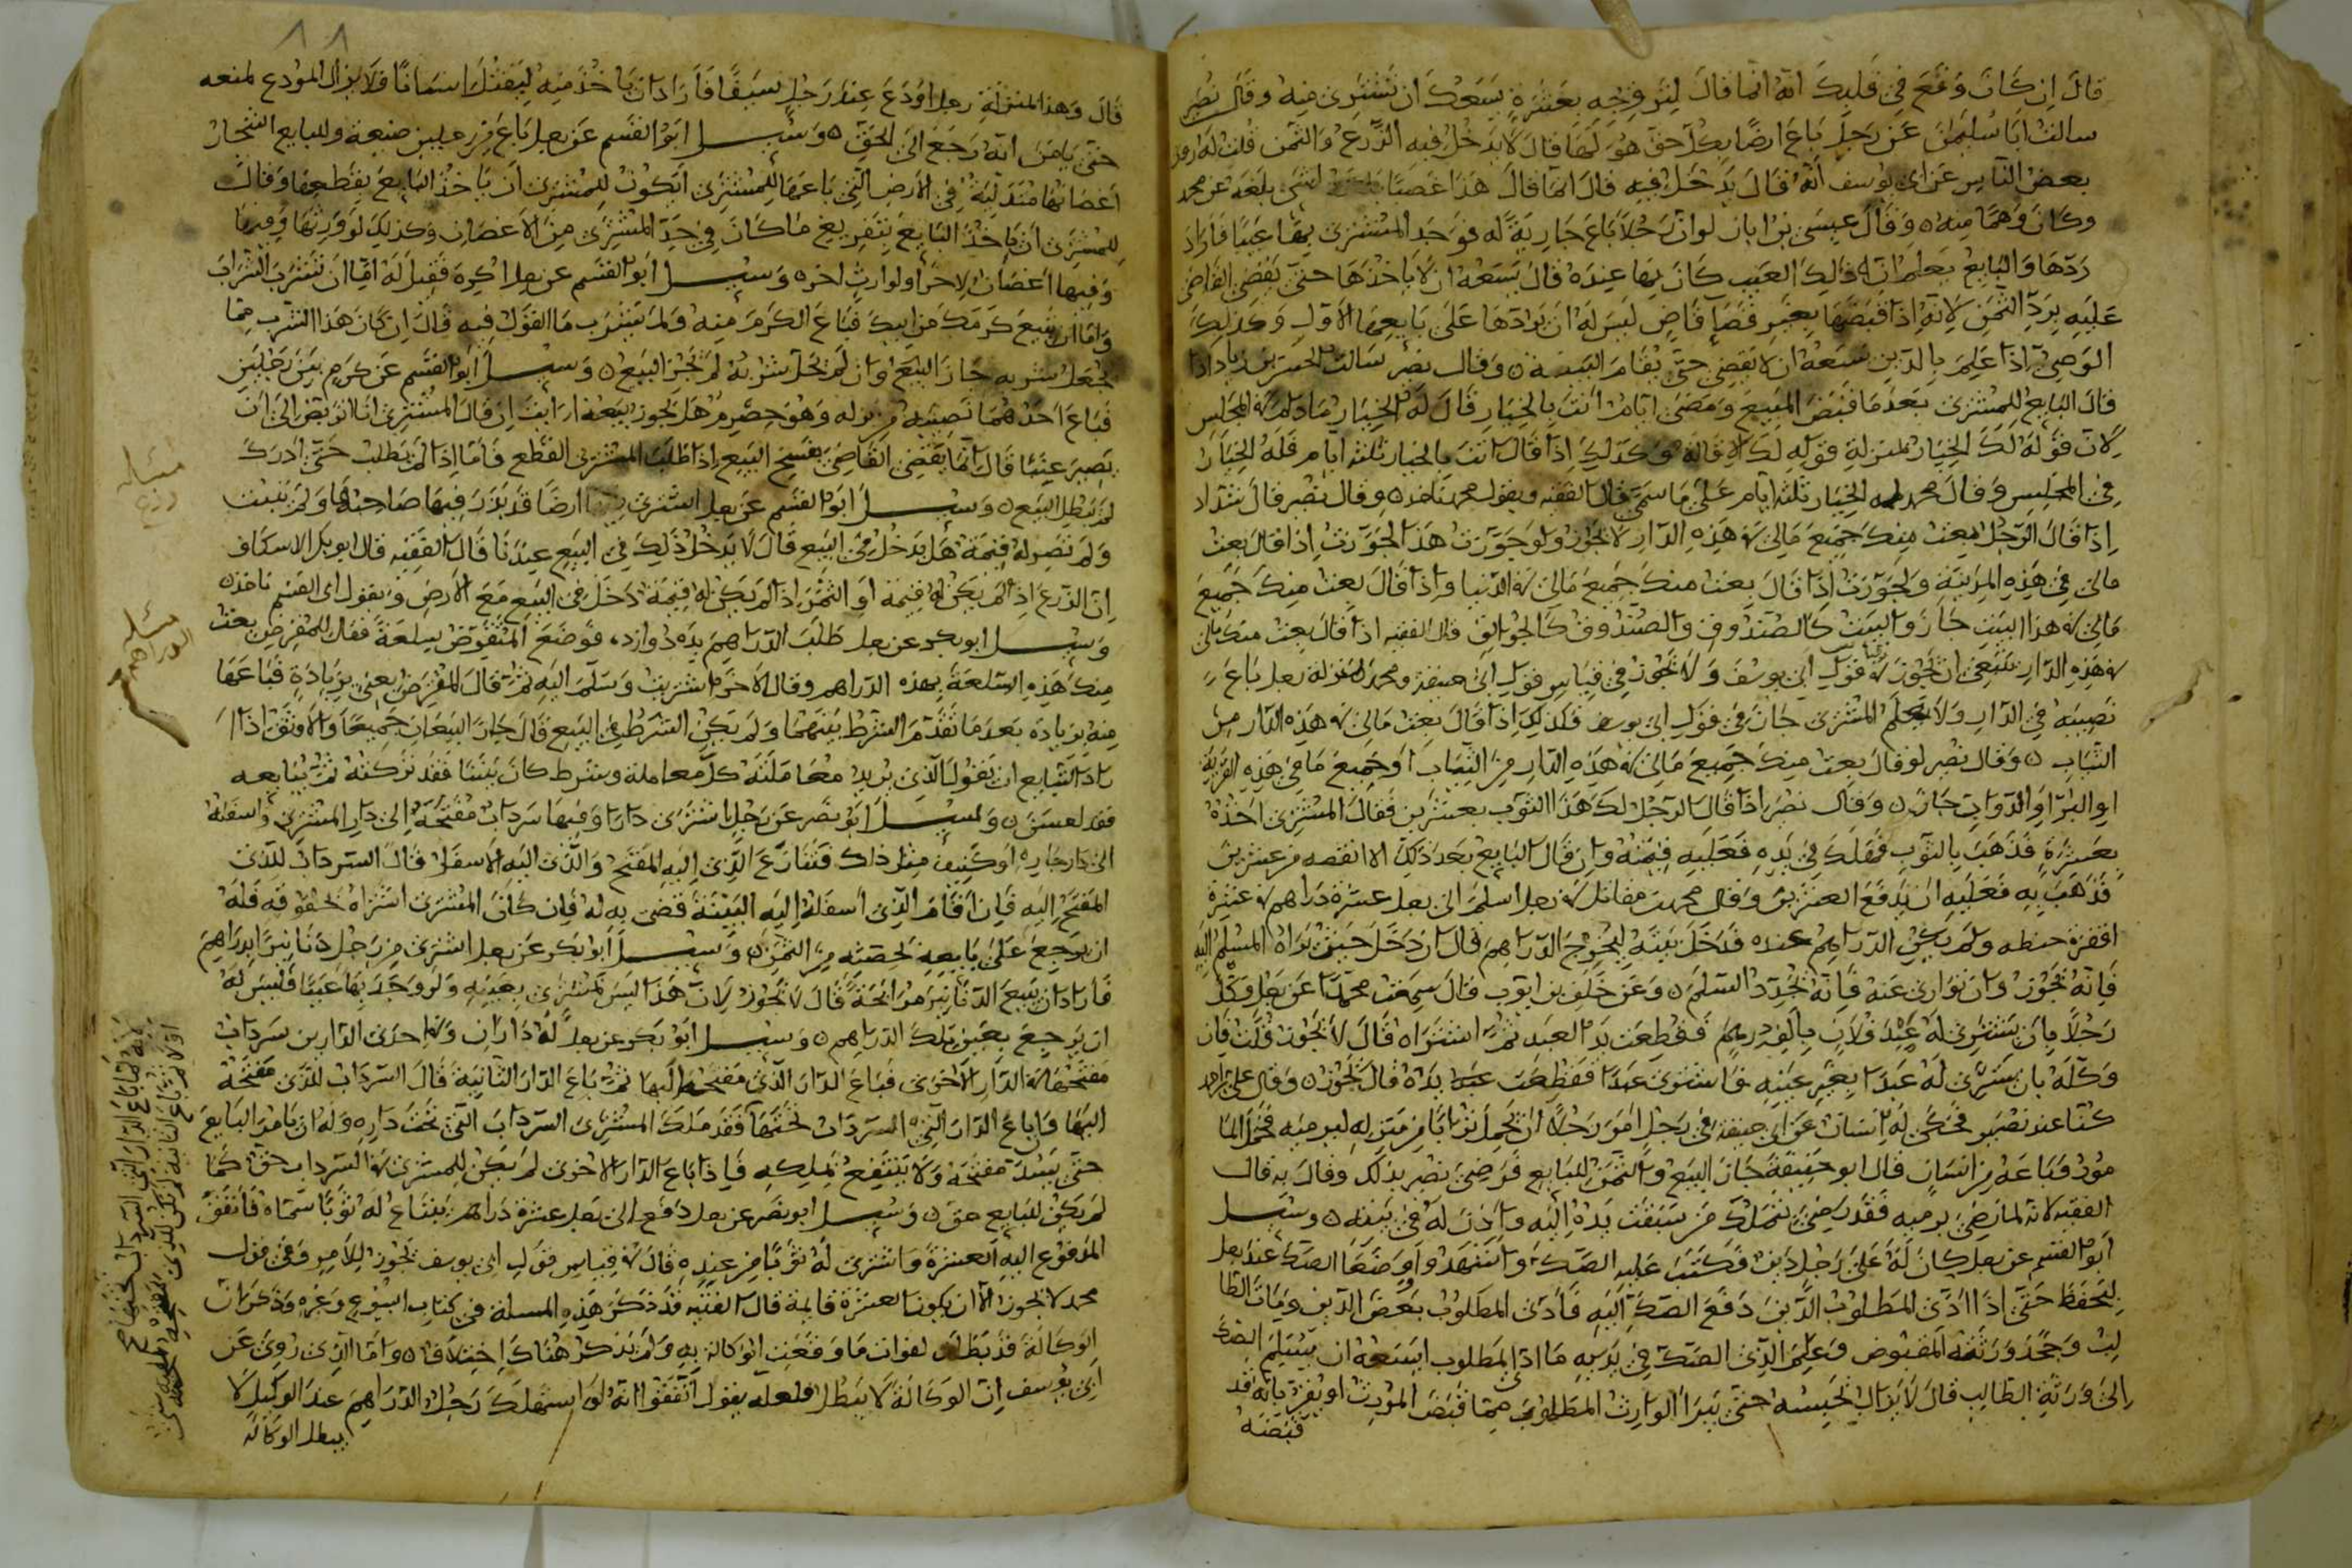 قال ان كان وقع في قلبك انه انما قال ليروجه بعشرة يسعك ان تشتري منه وقال نصير
سالت ابا سليمن عن رجل باع ارضا بكل حق هو لها قال لا يدخل فيه الزرع والثمن قلت له
بعض الناس عن ابي يوسف انه قال يدخل فيه قال انما قال هذا غصبا بلغه عن محمد
وكان وهما منه وقال عيسى بن ابان لو ان رجلا باع جارية له فوجد المشتري بها عيبا فاراد
ردها والبايع يعلم ان ذلك العيب كان بها عنده قال يسعه ان لا ياخذها حتى يقضي القاضي
عليه برد الثمن لانه اذا قبضها بغير قضا قاض ليس له ان يرادها على بايعها الاول وكذلك
الوصي اذا علم بالدين يسعه ان لا يقضي حتى يقام البينة وقال نصر سالت الحسن بن زياد اذا
قال البايع للمشتري بعدما قبض المبيع ومضى ايام انت بالخيار قال له الخيار مادام في المجلس
لان قوله لك الخيار بمنزلة قوله لك الاقالة وكذلك اذا قال انت بالخيار ثلثة ايام فله الخيار
في المجلس وقال محمد له الخيار ثلثة ايام على ما سمى قال الفقيه وبقول محمد ناخذ وقال نصر قال شداد
اذا قال الرجل بعت منك جميع مالي في هذه الدار لا يجوز ولو جوزت هذا لجوزت اذا قال بعت
مالي في هذه المدينة ولجوزت اذا قال بعت منك جميع مالي في الدنيا واذا قال بعت منك جميع
مالي في هذا البيت جاز والبيت كالصندوق والصندوق كالجوالق قال الفقيه اذا قال بعت منك مالي
في هذه الدار ينبغي ان يجوز في قول ابي يوسف ولا يجوز في قياس قول ابي حنيفة ومحمد بمنزلة رجل باع
نصيبه في الدار ولا يعلم المشتري جاز في قول ابي يوسف فكذلك اذا قال بعت مالي في هذه الدار من
الثياب وقال نصير لو قال بعت منك جميع مالي في هذه الدار من الثياب او جميع مالي في هذه القرية
او البر او الدواب جاز وقال نصر اذا قال الرجل لك هذا الثوب بعشرين فقال المشتري اخذه
بعشرة فذهب بالثوب فهلك في يده فعليه قيمته وان قال البايع بعد ذلك لا انقصه من عشرين
فذهب به فعليه ان يدفع العشرين وقال محمد بن مقاتل في رجل اسلم الى رجل عشرة دراهم في عشرة
اقفزة حنطة ولم يكن الدراهم عنده فدخل بيته ليخرج الدراهم قال ان دخل حيث يراه المسلم اليه
فانه يجوز وان توارى عنه فانه يجدد السلم وعن خلف بن ايوب قال سمعت محمدا عن رجل وكل
رجلا بان يشتري له عبد فلان بالف درهم فقطعت يد العبد ثم اشتراه قال لا يجوز قلت فان
وكله بان يشتري له عبدا بغير عينه فاشترى عبدا فقطعت يده قال يجوز وقال علي
كنا عند نصير فحكى له انسان عن ابي حنيفة في رجل امر رجلا ان يحمل ترابا من منزله ليرميه فحمل
مور فباعه من انسان قال ابو حنيفة جاز البيع والثمن للبايع فرضي نصير بذلك وقال به قال
الفقيه لانه لما رضي برميه فقد رضي بتملك من سبقت يده اليه واذن له في بيعه وسئل
ابو القسم عن رجل كان له على رجل دين فكتب عليه الصك واشهد ووضعا الصك عند رجل
ليحفظ حتى اذا ادى المطلوب الدين دفع الصك اليه فادى المطلوب بعض الدين ومات الطا
لب وجحد ورثته المقبوض وعلم الذي الصك في يديه ما ادى المطلوب ايسعه ان يسلم الصك
الى ورثة الطالب قال لا يزال يحبسه حتى يبرا الوارث المطلوب مما قبض المورث او يقر بانه قد
قبضه
قال وهذا بمنزلة رجل اودع عند رجل سيفا فاراد ان ياخذ منه ليقتل انسانا فلا يزال المودع لمنعه
حتى يامن انه رجع الى الحق وسئل ابو القسم عن رجل باع من رجلين ضيعة وللبايع اشجار
اغصانها متدلية في الارض التي باعها للمشتري ايكون للمشتري ان ياخذ البايع بقطعها وقال
للمشتري ان ياخذ البايع بتفريغ ما كان في حد المشتري من الاغصان وكذلك لو ورثها وفيها
وفيها اغصان لاخر او لوارث اخر وسئل ابو القسم عن رجل اكره فقيل له اما ان تشرب الشراب
واما ان تبيع كرمك من ابيك فباع الكرم منه ولم يشرب ما القول فيه قال ان كان هذا الشرب مما
يحل شربه جاز البيع وان لم يحل شربه لم يجز البيع وسئل ابو القسم عن كرم بين رجلين
فباع احدهما نصيبه من نزله وهو حصرم هل يجوز بيعه ارايت ان قال المشتري انا اتربص الى ان
يصير عنبا قال انما يقضي القاضي بفسخ البيع اذا طلب المشتري القطع فاما اذا لم يطلب حتى ادرك
لم يبطل البيع وسئل ابو القسم عن رجل اشترى ارضا قد بذر فيها صاحبها ولم ينبت
ولم تصر له قيمة هل يدخل في البيع قال لا يدخل ذلك في البيع عندنا قال الفقيه قال ابو بكر الاسكاف
ان الزرع اذا لم يكن له قيمة او الثمر اذا لم يكن له قيمة دخل في البيع مع الارض وبقول ابي القسم ناخذ
وسئل ابو بكر عن رجل طلب الدراهم بده دوازده فوضع المستقرض سلعة فقال للمقرض بعت
منك هذه السلعة بهذه الدراهم وقال الاخر اشتريت وسلم اليه ثم قال المقرض بعني بزيادة فباعها
منه بزيادة بعدما تقدم الشرط بينهما ولم يكن الشرط في البيع قال جاز البيعان جميعا والاوثق اذا ا
راد التبايع ان يقول الذي يريد معاملته كل معاملة وشرط كان بيننا فقد تركته ثم يبايعه
وسئل ابو نصر عن رجل اشترى دارا وفيها سرداب مفتحه الى دار المشتري واسفله
الى دار جاره او كنيف مثل ذلك فتنازع الذي اليه المفتح والذي اليه الاسفل قال السرداب للذي
المفتح اليه فان اقام الذي اسفله اليه البينة قضى به له فان كان المشتري اشتراه بحقوقه فله
ان يرجع على بايعه بحصته من الثمن وسئل ابو بكر عن رجل اشترى من رجل دنانيرا بدراهم
فاراد ان يبيع الدنانير مرابحة قال لا يجوز لان هذا ليس بمشترى بعينه ولو وجد بها عيبا فليس له
ان يرجع بعين تلك الدراهم وسئل ابو بكر عن رجل له داران وفي احدى الدارين سرداب
مفتحه في الدار الاخرى فباع الدار الذي مفتحه اليها ثم باع الدار الثانية قال السرداب للذي مفتحه
اليها وان باع الدار التي السرداب تحتها فقد ملك المشتري السرداب التي تحت داره وله ان يامر البايع
حتى يسد مفتحه ولا ينتفع بملكه فاذا باع الدار الاخرى لم يكن للمشتري في السرداب حق كما
لم يكن للبايع حق وسئل ابو نصر عن رجل دفع الى رجل عشرة دراهم يبتاع له ثوبا سماه فانفق
المدفوع اليه العشرة واشترى له ثوبا من عنده قال في قياس قول ابي يوسف يجوز للامر وفي قول
محمد لا يجوز الا ان يكون العشرة قايمة قال الفقيه قد ذكر هذه المسلة في كتاب البيوع وغيره وذكر ان
الوكالة قد بطلت لفوات ما وقعت الوكالة به ولم يذكر هناك اختلاف واما الذي روي عن
ابي يوسف ان الوكالة لا يبطل فلعله يقول اتفقوا انه لو استهلك رجل الدراهم عند الوكيل لا
يبطل الوكالة
مسئلة
زرع
مسئله
الدراهم